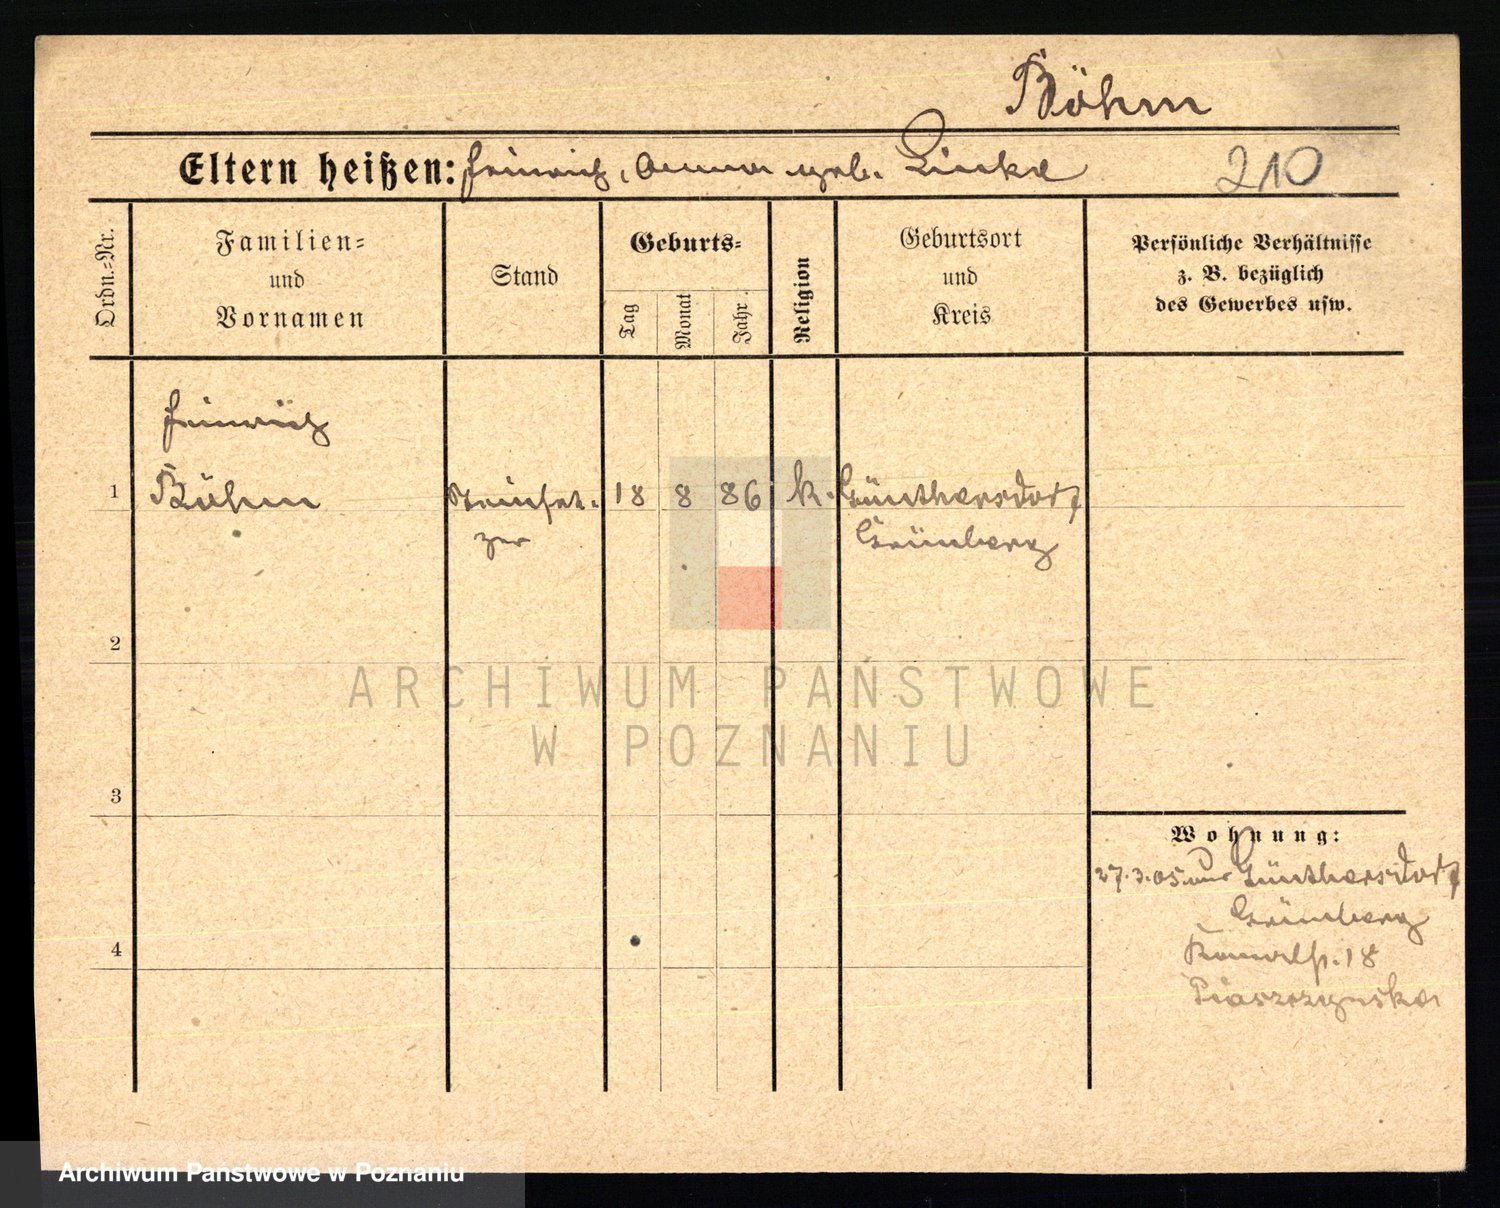 Böhm
Eltern heißen: Heinrich, Anna geb. Linke
210
Ordn.-Nr.
Familien-
und
Vornamen
Stand
Geburts-
Tag
Monat
Jahr
Religion
Geburtsort
und
Kreis
Persönliche Verhältnisse
z. B. bezüglich
des Gewerbes usw.
Heinrich
1 Böhm Steinset- 18 8 86 k. Günthersdorf
zer Grünberg
2
ARCHIWUM PAŃSTWOWE
W POZNANIU
3
Wohnung:
27.3.05 Günthersdorf
Grünberg
4
Kanalstr. 18
Piaszczynska
Archiwum Państwowe w Poznaniu